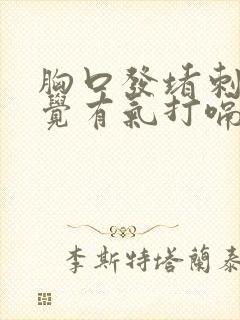 胸口發堵刺
覺有氣打嗝
李斯特塔蘭泰